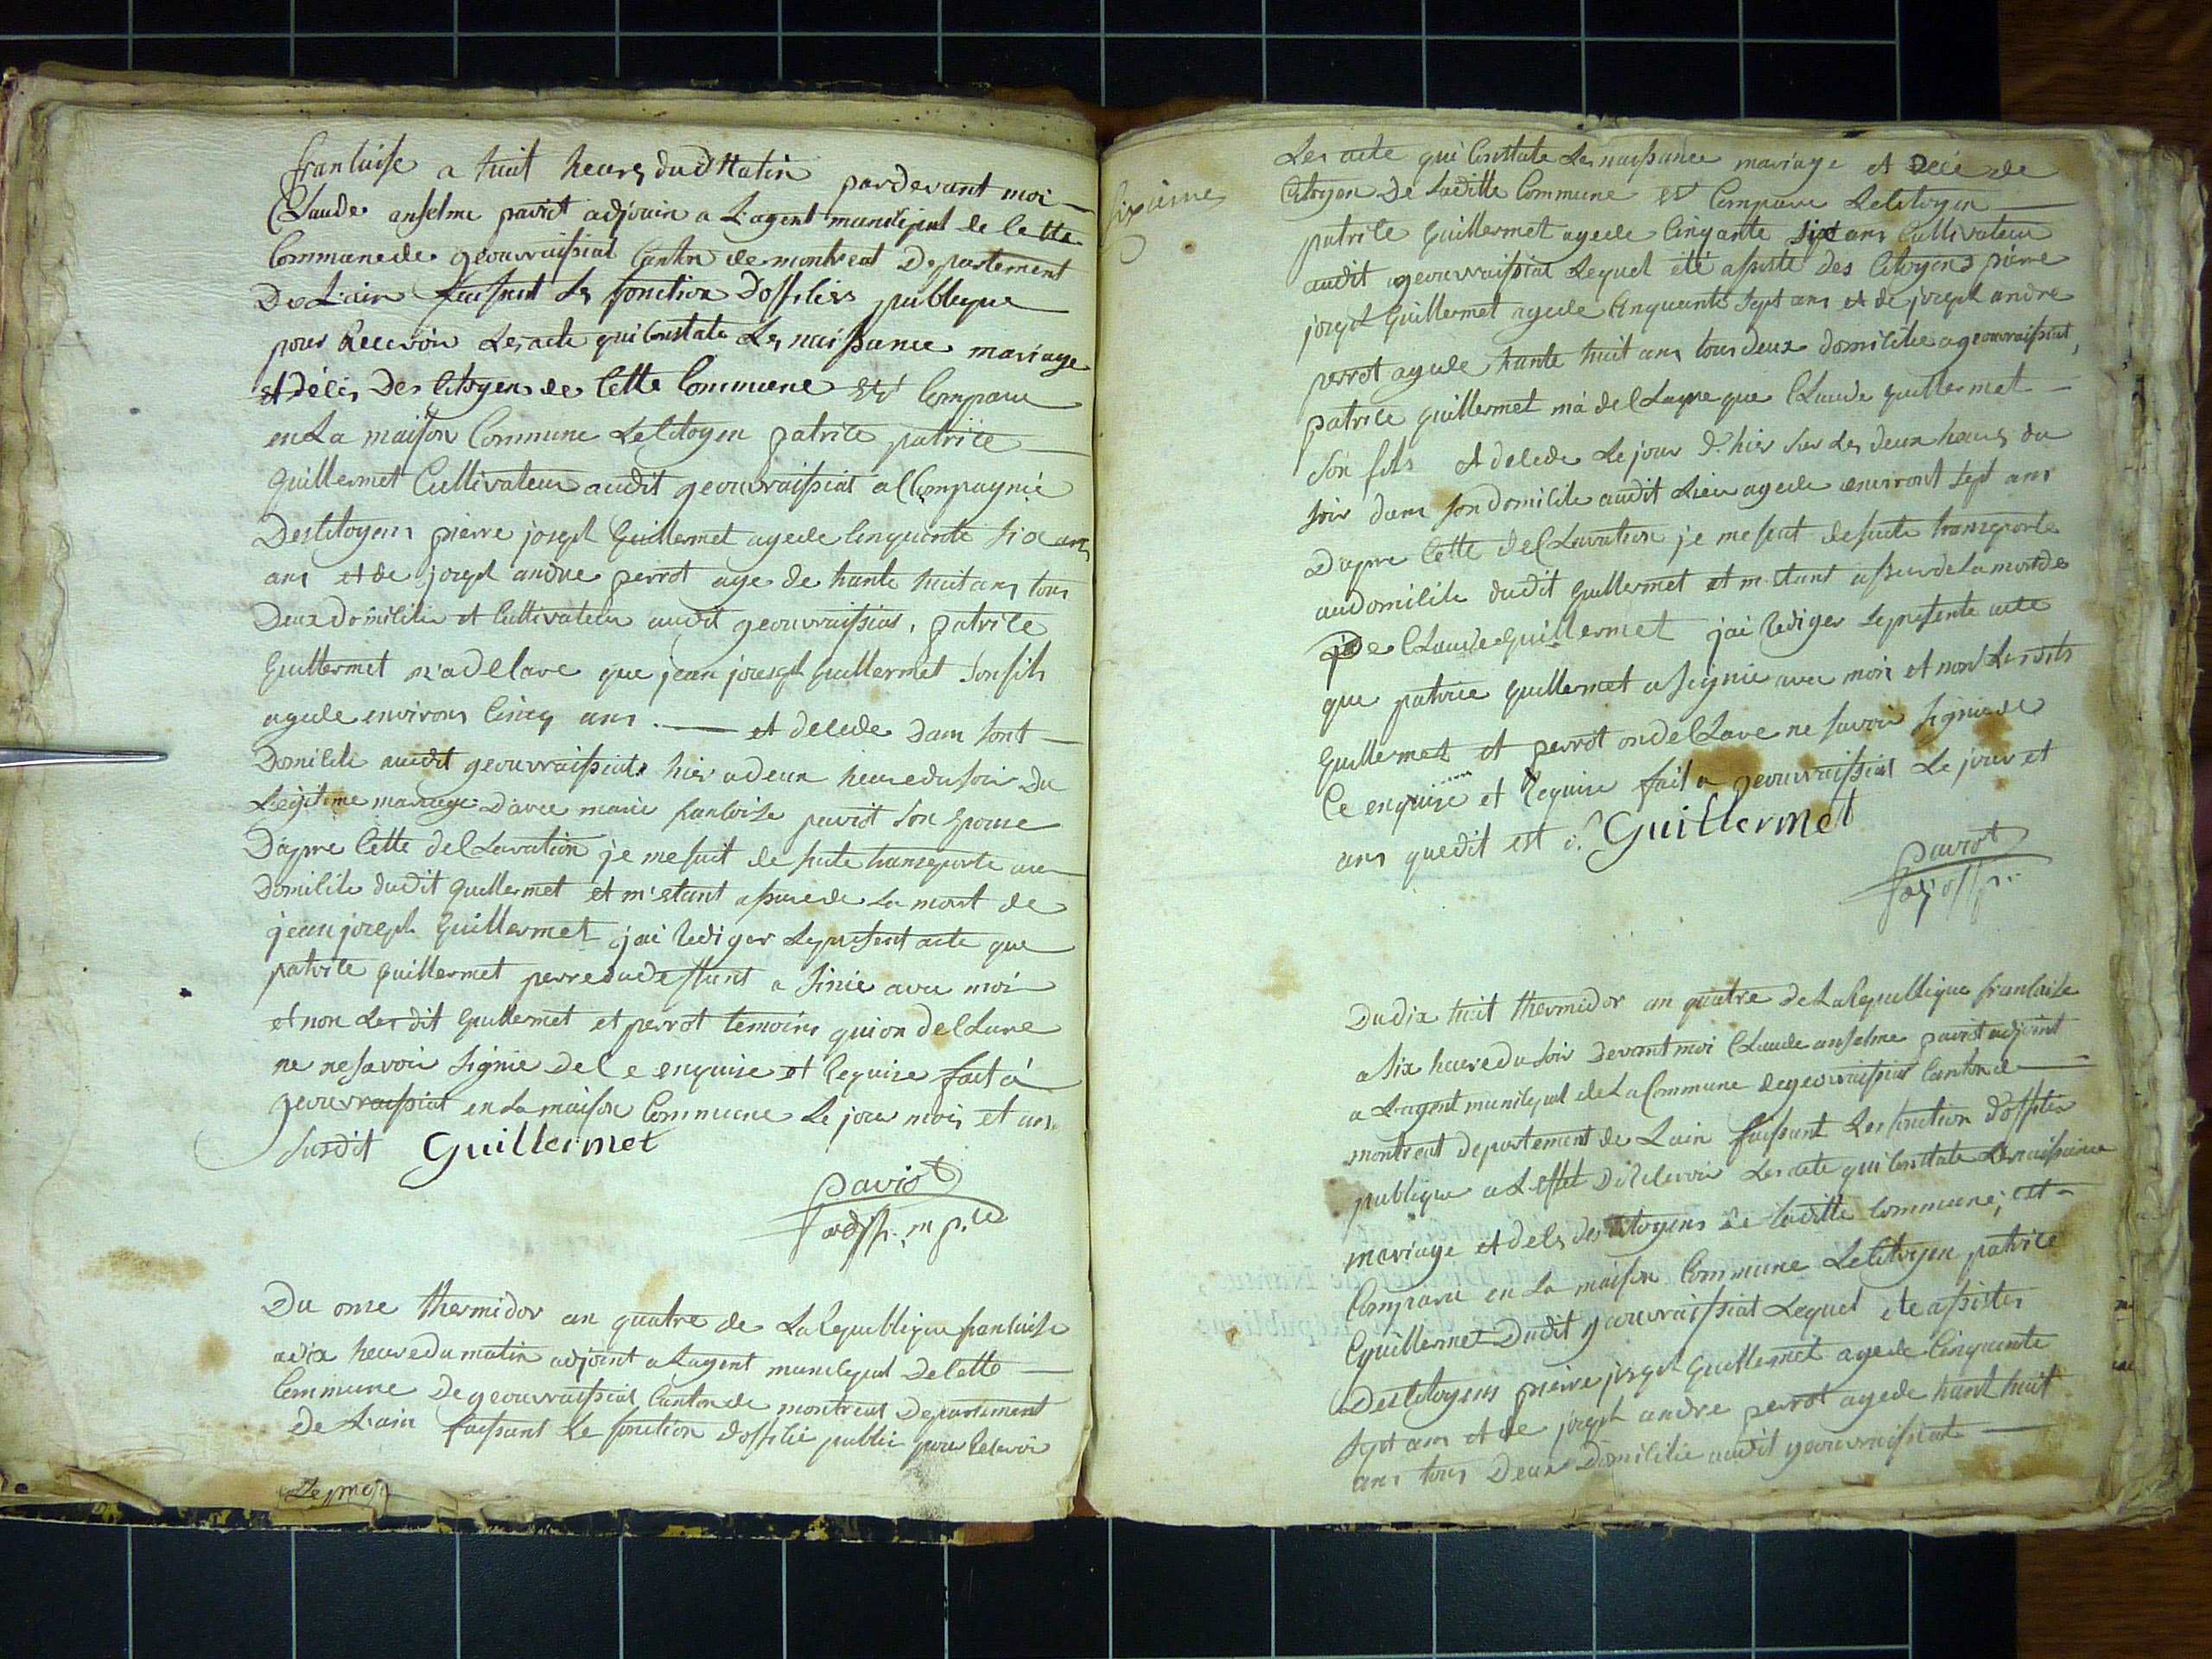 francaise a huit heures dud Matin pardevant moi
Claude anselme paviot adjoin a L'agent municipal de cette
Commune de geouvraissiat Canton de montreal Departement
De L'ain faissant Les fonction D'officier publique
pour Recevoir Les acte qui Constate Les naissance mariage
et Décés Des Citoyen de Cette Commune est Comparu
en La maison Commune Le Citoyen patrice patrice
Guillermet Cultivateur audit geouvraissiat aCCompagnié
Des Citoyens pierre joseph Guillermet agé de Cinquante six ans
ans et de joseph andre perrot age de trante huit ans tous
Deux domicilie et Cultivateur audit geouvraissias, patrice
Guillermet m'a declare que jean joseph Guillermet Son fils
agé de environs Cincq ans. et decede Dam sont
Domicile audit geouvraissiat hier a deux heure du soir Du
Legitime mariage D'avec marie francoise paviot Son Epouse
D'apres Cette decLaration je me suit de suite transporte au
Domicile dudit Guillermet et m'etant assure de La mort de
jean joseph Guillermet j'ai Rediger Le present acte que
patrice Guillermet perre du deffunt a sinie avec moi
et non Les dit Guillermet et perrot temoins qui on decLare
ne ne savoir signie de Ce enquise et Requise fait à
geouvraissiat en La maison Commune Le jour mois et ans
susdit Guillermet
paviot
Du onze thermidor an quatre de La Republique francaise
a dix heure du matin adjoint a Lagent municipal De Cette
Commune De geouvraissiat Canton de montreal Departement
De L'ain faissant Le fonction d'officie public pour Recevoir
sixieme
Les acte qui Constate Les naissance mariage et Décé de
Citoyen De Laditte Commune est Comparu Le Citoyen
patrice Guillermet agé de Cinqante sixt ans Cultivateur
audit geouvraissiat Lequel été assisté des Citoyens pierre
joseph Guillermet agé de Cinquante sept ans et de joseph andre
perrot agé de trante huit ans tous deux domicilie a geouvraissiat,
patrice Guillermet m'a decLare que CLaude Guillermet
Son fils et decede Le jour d'hier sur Les deux heures du
soir dans son domicile audit Lieu agé de environt sept ans
D'apres Cette decLaration je me suit de suite transporte
au domicile dudit Guillermet et m'etant assure de La mort de
de CLaude Guillermet j'ai Rediger Le presente acte
que patrice Guillermet a signie avec moi et non Les dits
Guillermet et perrot on decLare ne savoir signie de
Ce enquise et Requise fait a geouvraissiat Le jour et
ans que dit est d. Guillermet
paviot
Du dix huit thermidor an quatre de La Republique francaise
a six heure du soir Devant moi CLaude anselme paviot adjoint
a Lagent municipal de La Commune de geouvraissiat Canton de
montreal departement de Lain faissant Les fonction d'officier
publique a L'effet De Recevoir Les acte qui Constate Les naissance
mariage et decés des Citoyens de Laditte Commune, est
Comparu en La maison Commune Le Citoyen patrice
Guillermet Dudit geouvraissiat Lequel ete assister
Des Citoyens pierre joseph Guillermet agé de Cinquante
sept ans et de joseph andre perrot agé de trant huit
ans tous Deux Domicilie audit geouvraissiat